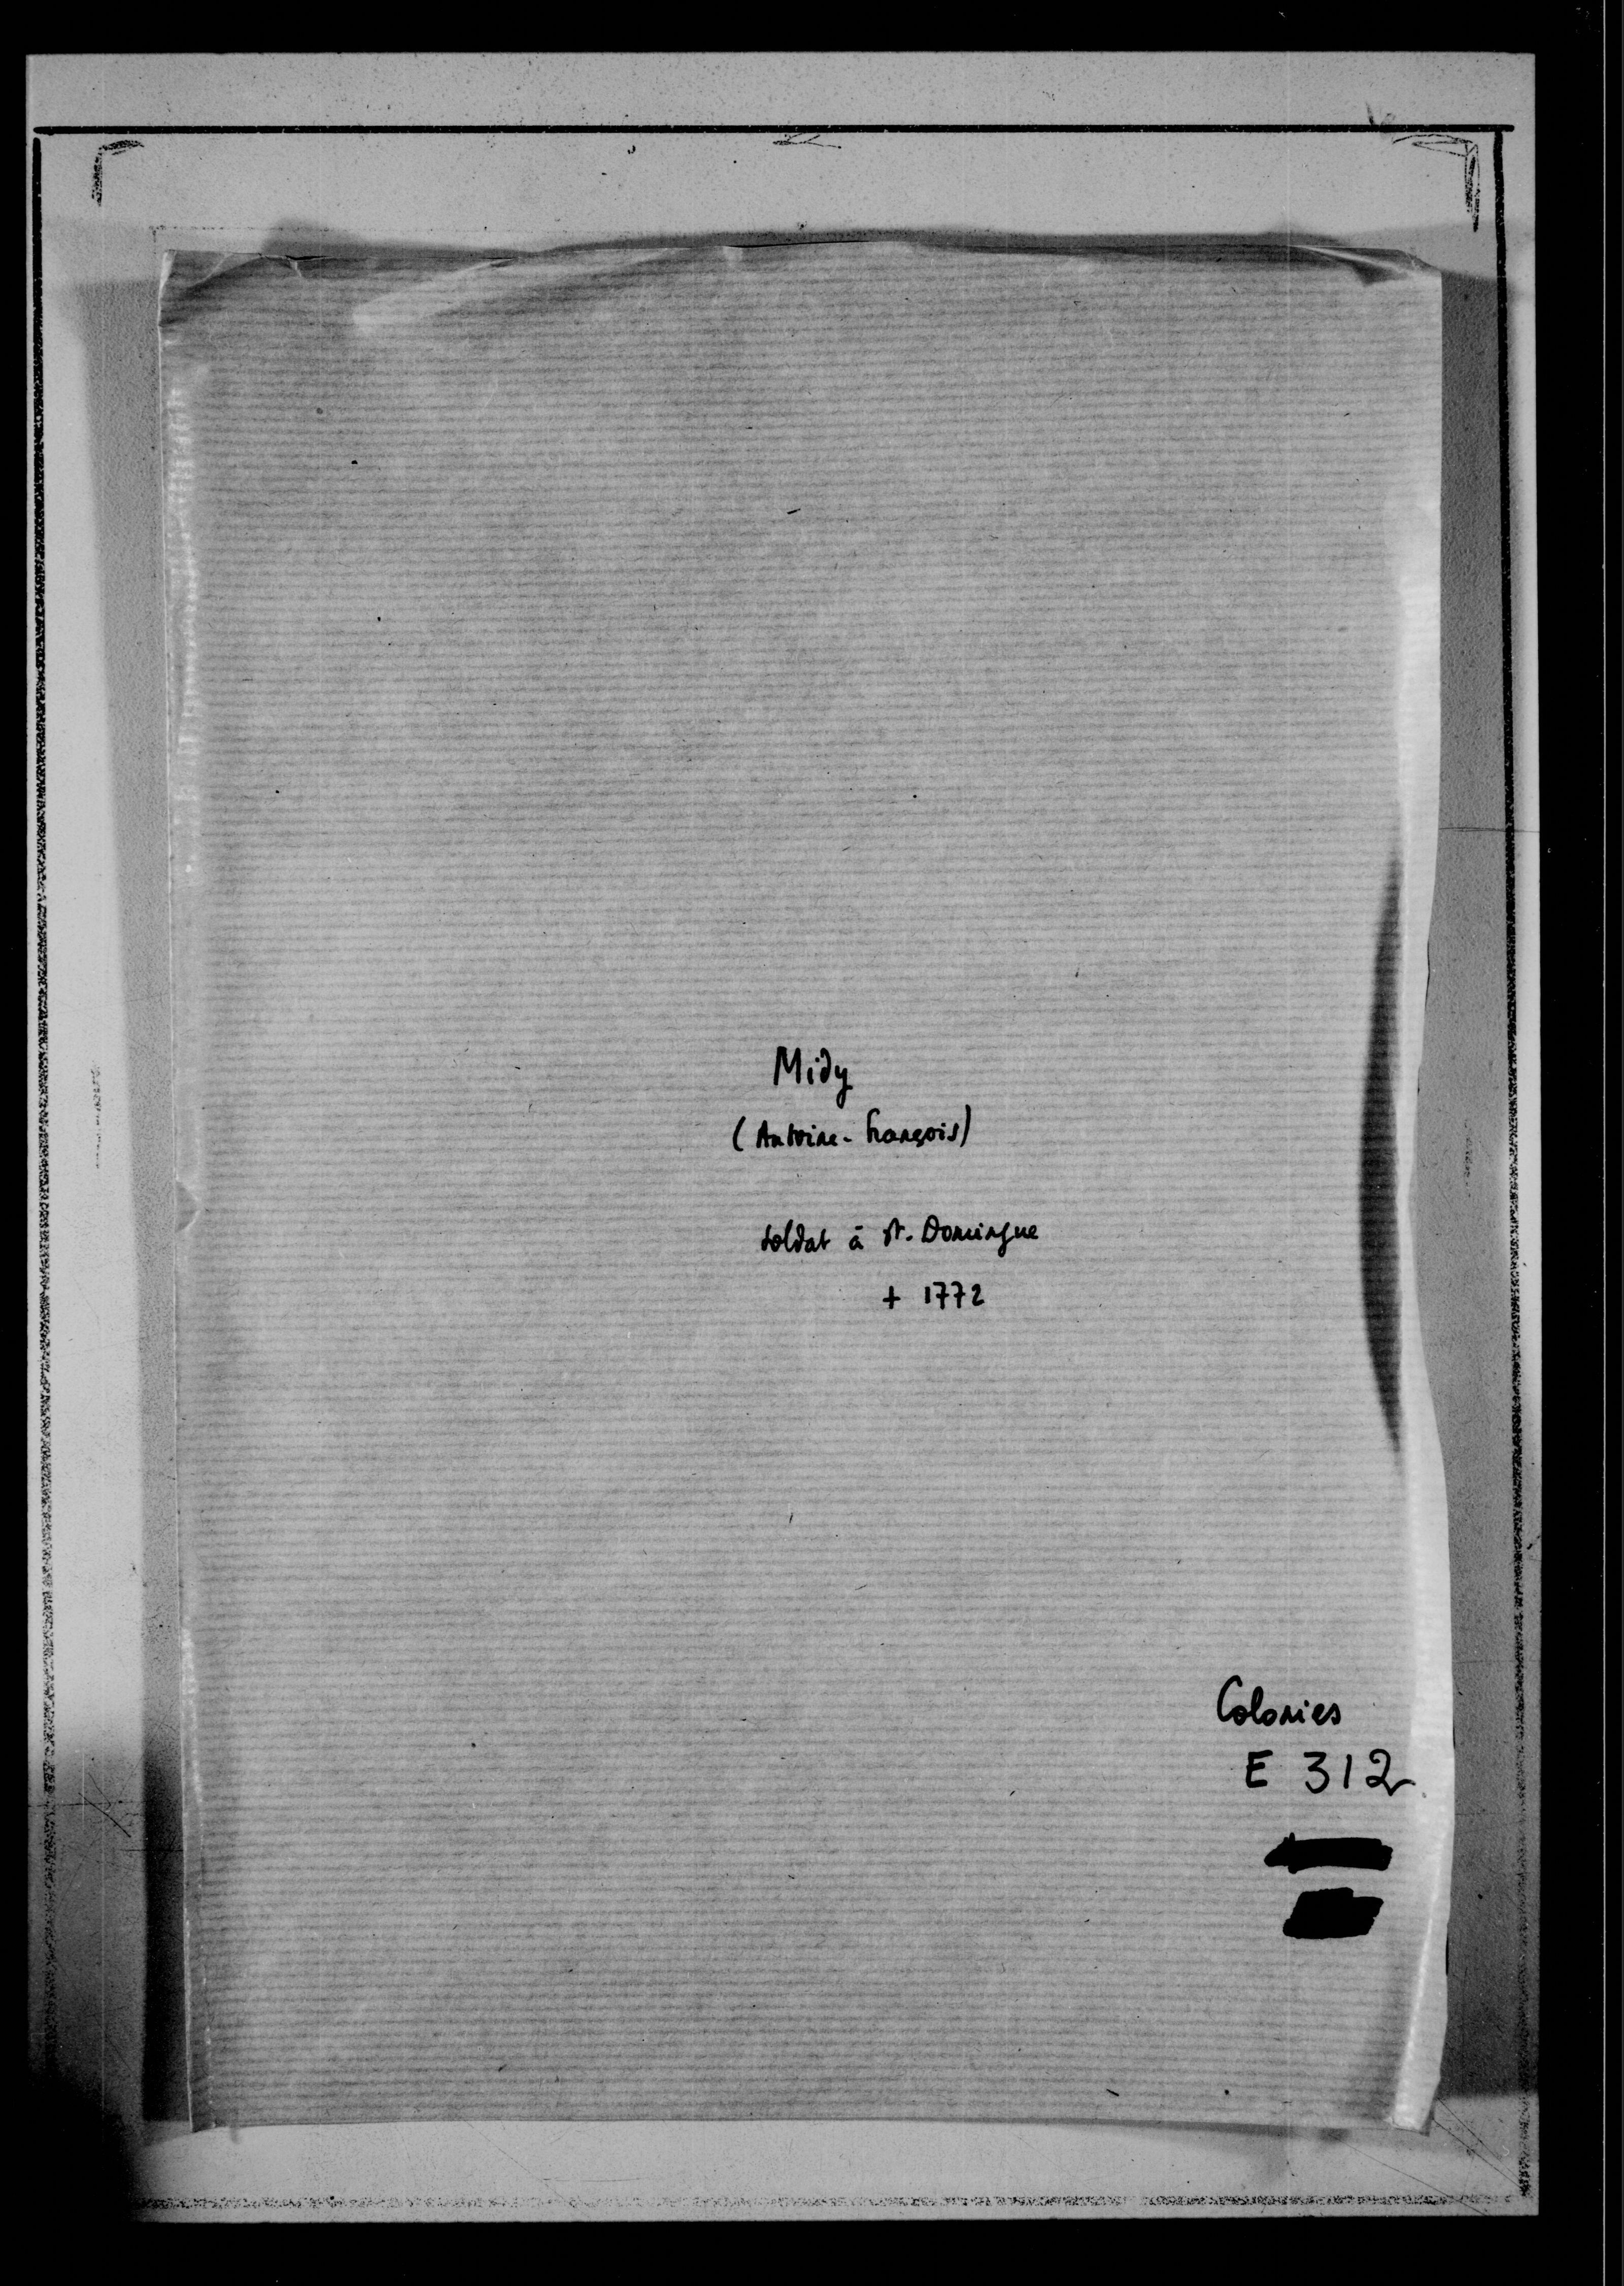 Midy
(Antoine-François)
soldat à St. Domingue
+ 1772
Colonies
E 312